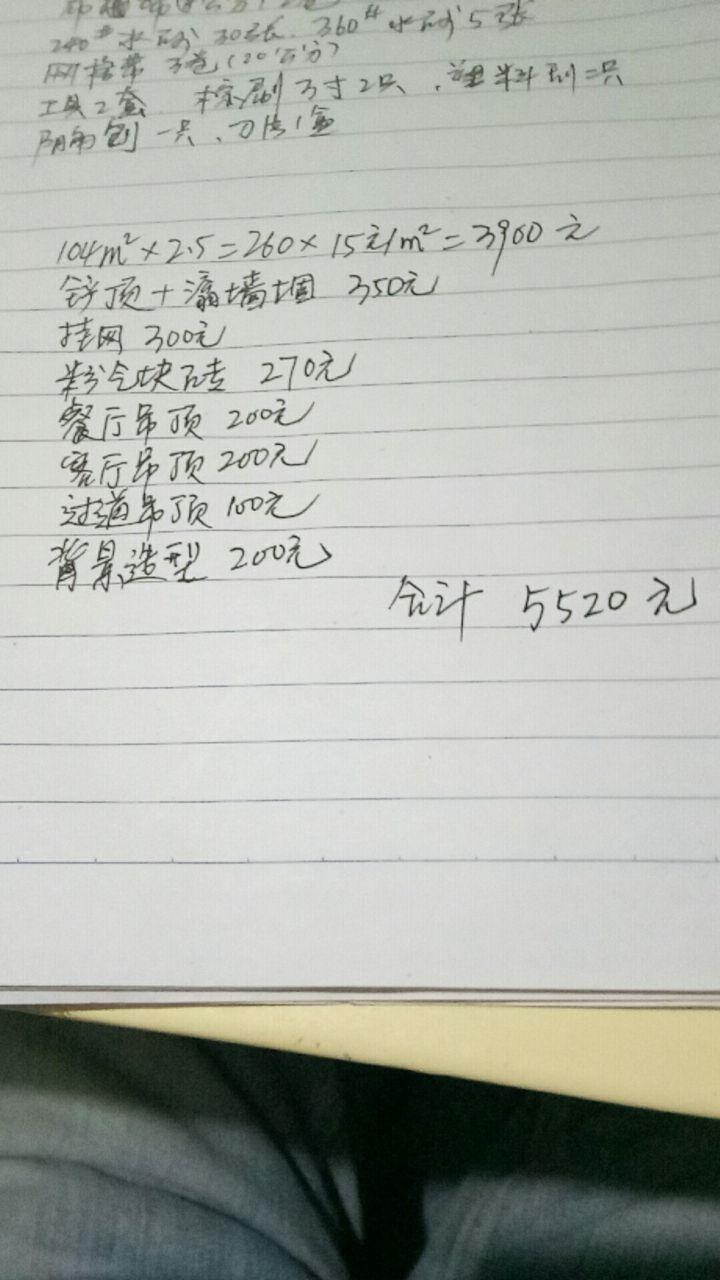 240# 水砂 30张. 360# 水砂 5张
网格带 3卷(20公分)
工具2套 棕刷3寸2只、塑料刷二只
阴角刨 一只、刀片1盒
104m²×2.5=260×15元/m²=3900元
铲顶+ 墙固 350元
挂网 300元
粉仓块砖 270元
餐厅吊顶 200元
客厅吊顶 200元
过道吊顶 100元
背景造型 200元
合计 5520元